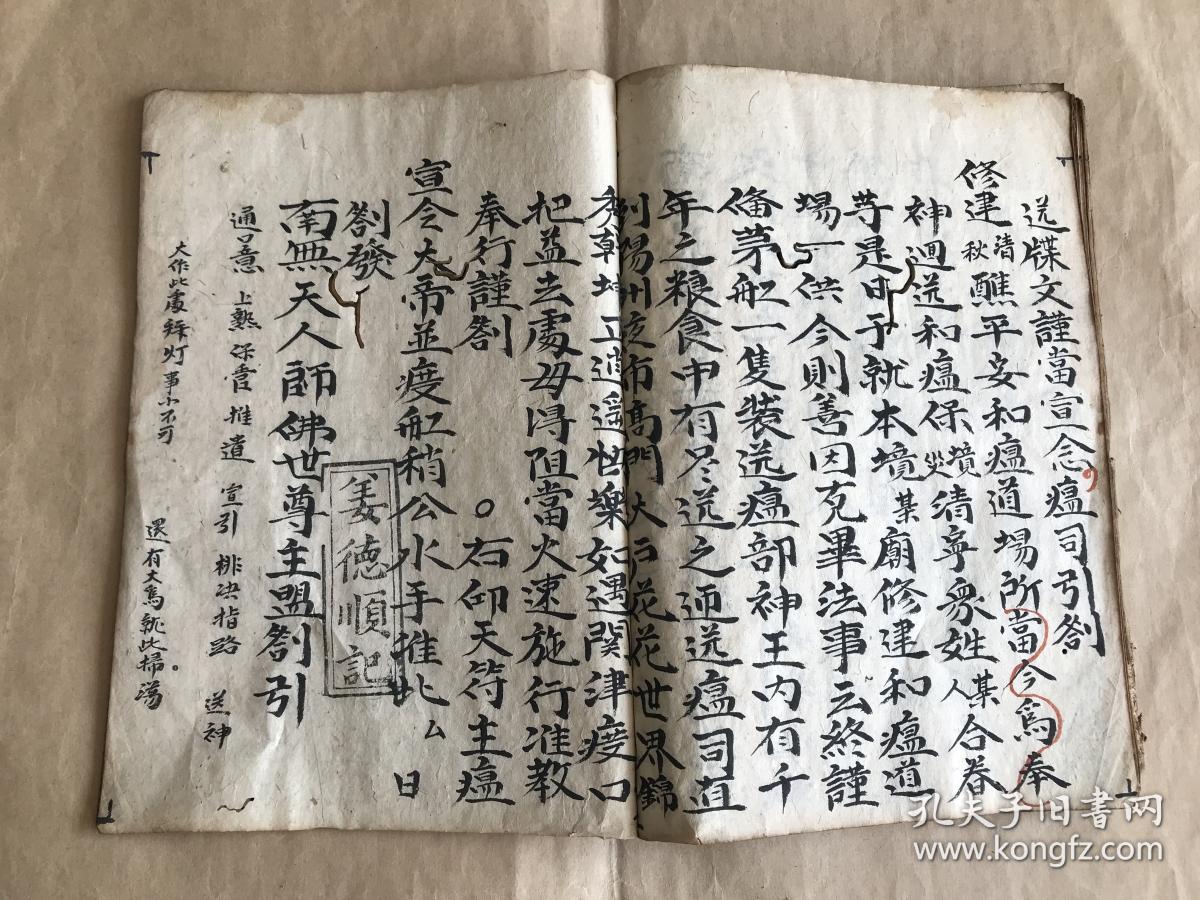 送牒文謹當宣念瘟司引劄
修建清秋醮平妄和瘟道場所當今爲奉
神迴送和瘟保境災清寧衆姓人某合眷
等是日于就本境某廟修建和瘟道
場一供今則善因克畢法事云終謹
俻茅舡一隻裝送瘟部神王内有千
年之粮食中有尽送之逥送瘟司直
到揚州亥市髙門大石花花世界錦
秀乾坤正逍遥快樂如遇関津度口
把益去處毋得阻當火速施行准教
奉行謹劄 ○右仰天符主瘟
宣令大帝並瘦舡稍公水手准此 厶 日
劄發
南無天人師佛世尊主盟劄引
通意 上熟 推遣 宣引 排决指路 送神
大作此處 灯事不可 還有大馬就此掃蕩。
姜德順記
孔夫子旧书网
www.kongfz.com